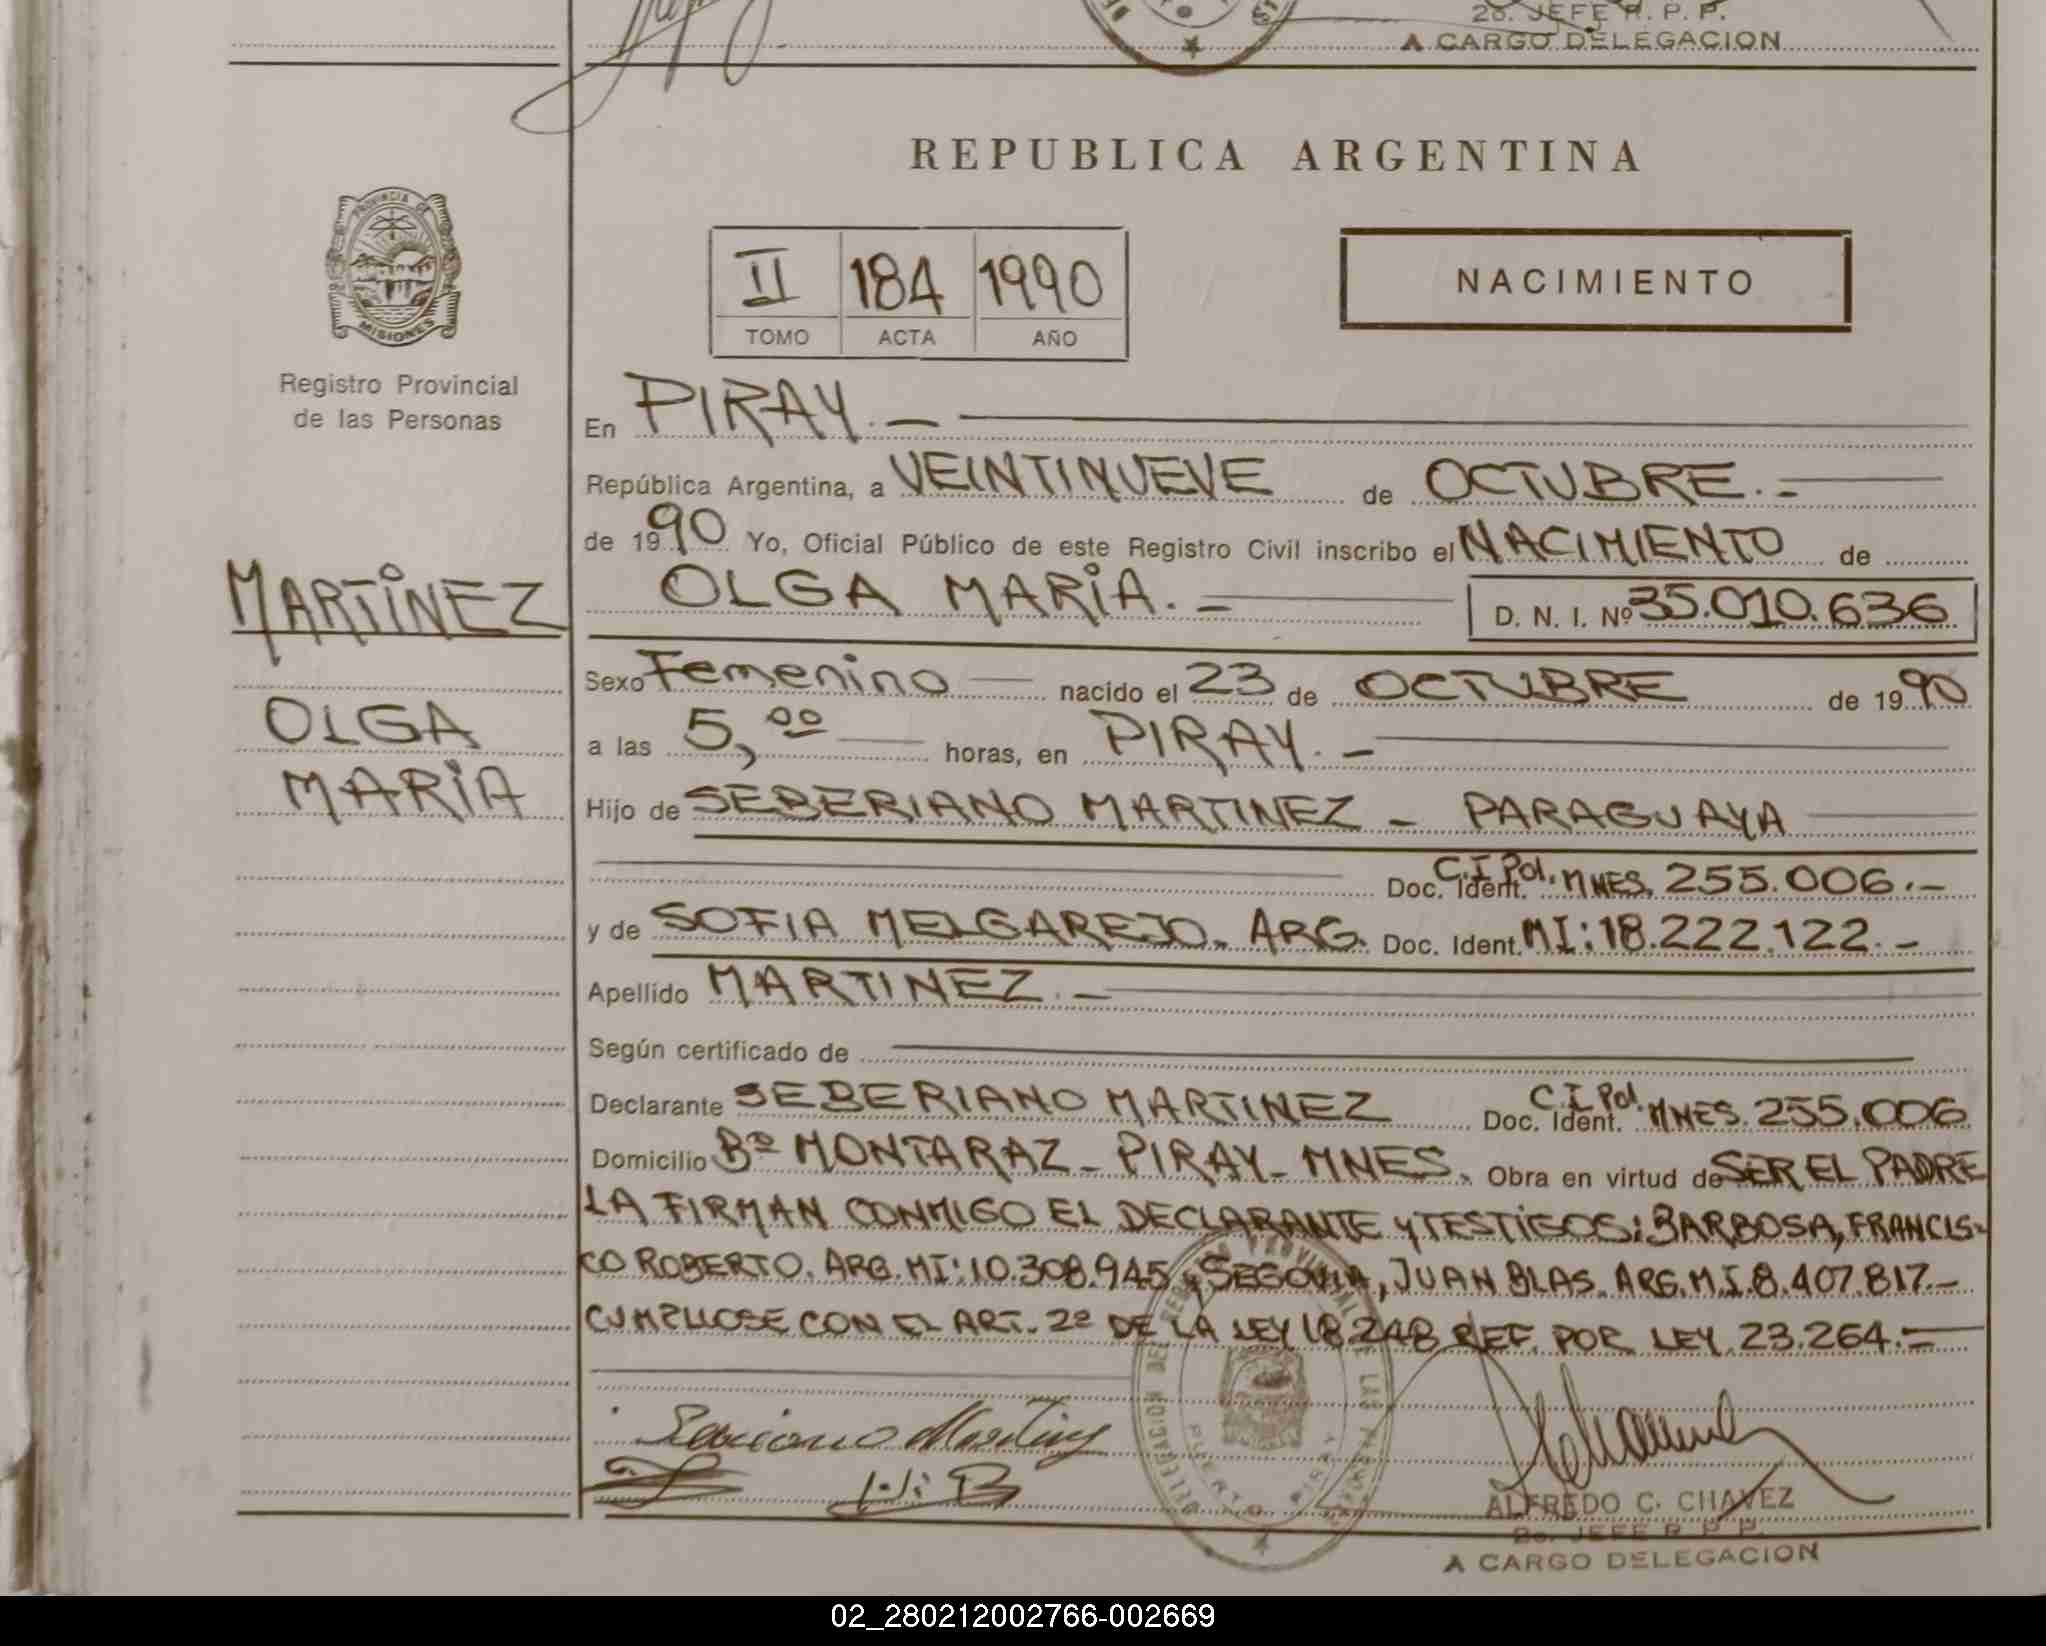 2o. JEFE R. P. P.
A CARGO DELEGACION
REPUBLICA ARGENTINA
PROVINCIA DE
MISIONES
Registro Provincial
de las Personas
II 184 1990
TOMO ACTA AÑO
NACIMIENTO
En PIRAY.-
República Argentina, a VEINTINUEVE de OCTUBRE.-
de 1990 Yo, Oficial Público de este Registro Civil inscribo el NACIMIENTO de
MARTINEZ
OLGA MARIA.- D. N. I. Nº 35.010.636
Sexo Femenino nacido el 23 de OCTUBRE de 1990
OLGA
a las 5,00 horas, en PIRAY.-
MARIA
Hijo de SEBERIANO MARTINEZ - PARAGUAYA
Doc. Ident. C.I Pol. MNES. 255.006.-
y de SOFIA MELGAREJO. ARG. Doc. Ident. MI: 18.222.122.-
Apellido MARTINEZ.-
Según certificado de
Declarante SEBERIANO MARTINEZ Doc. Ident. C.I Pol. MNES. 255.006
Domicilio Bº MONTARAZ - PIRAY - MNES. Obra en virtud de SER EL PADRE
LA FIRMAN CONMIGO EL DECLARANTE Y TESTIGOS: BARBOSA, FRANCIS-
CO ROBERTO. ARG. MI: 10.308.945 y SEGOVIA, JUAN BLAS. ARG. M.I. 8.407.817.-
CUMPLIOSE CON EL ART. 2º DE LA LEY 18248 REF. POR LEY 23.264.=
DELEGACION DEL REGISTRO PROVINCIAL DE LAS PERSONAS
PUERTO PIRAY
ALFREDO C. CHAVEZ
2o. JEFE R. P. P.
A CARGO DELEGACION
02_280212002766-002669